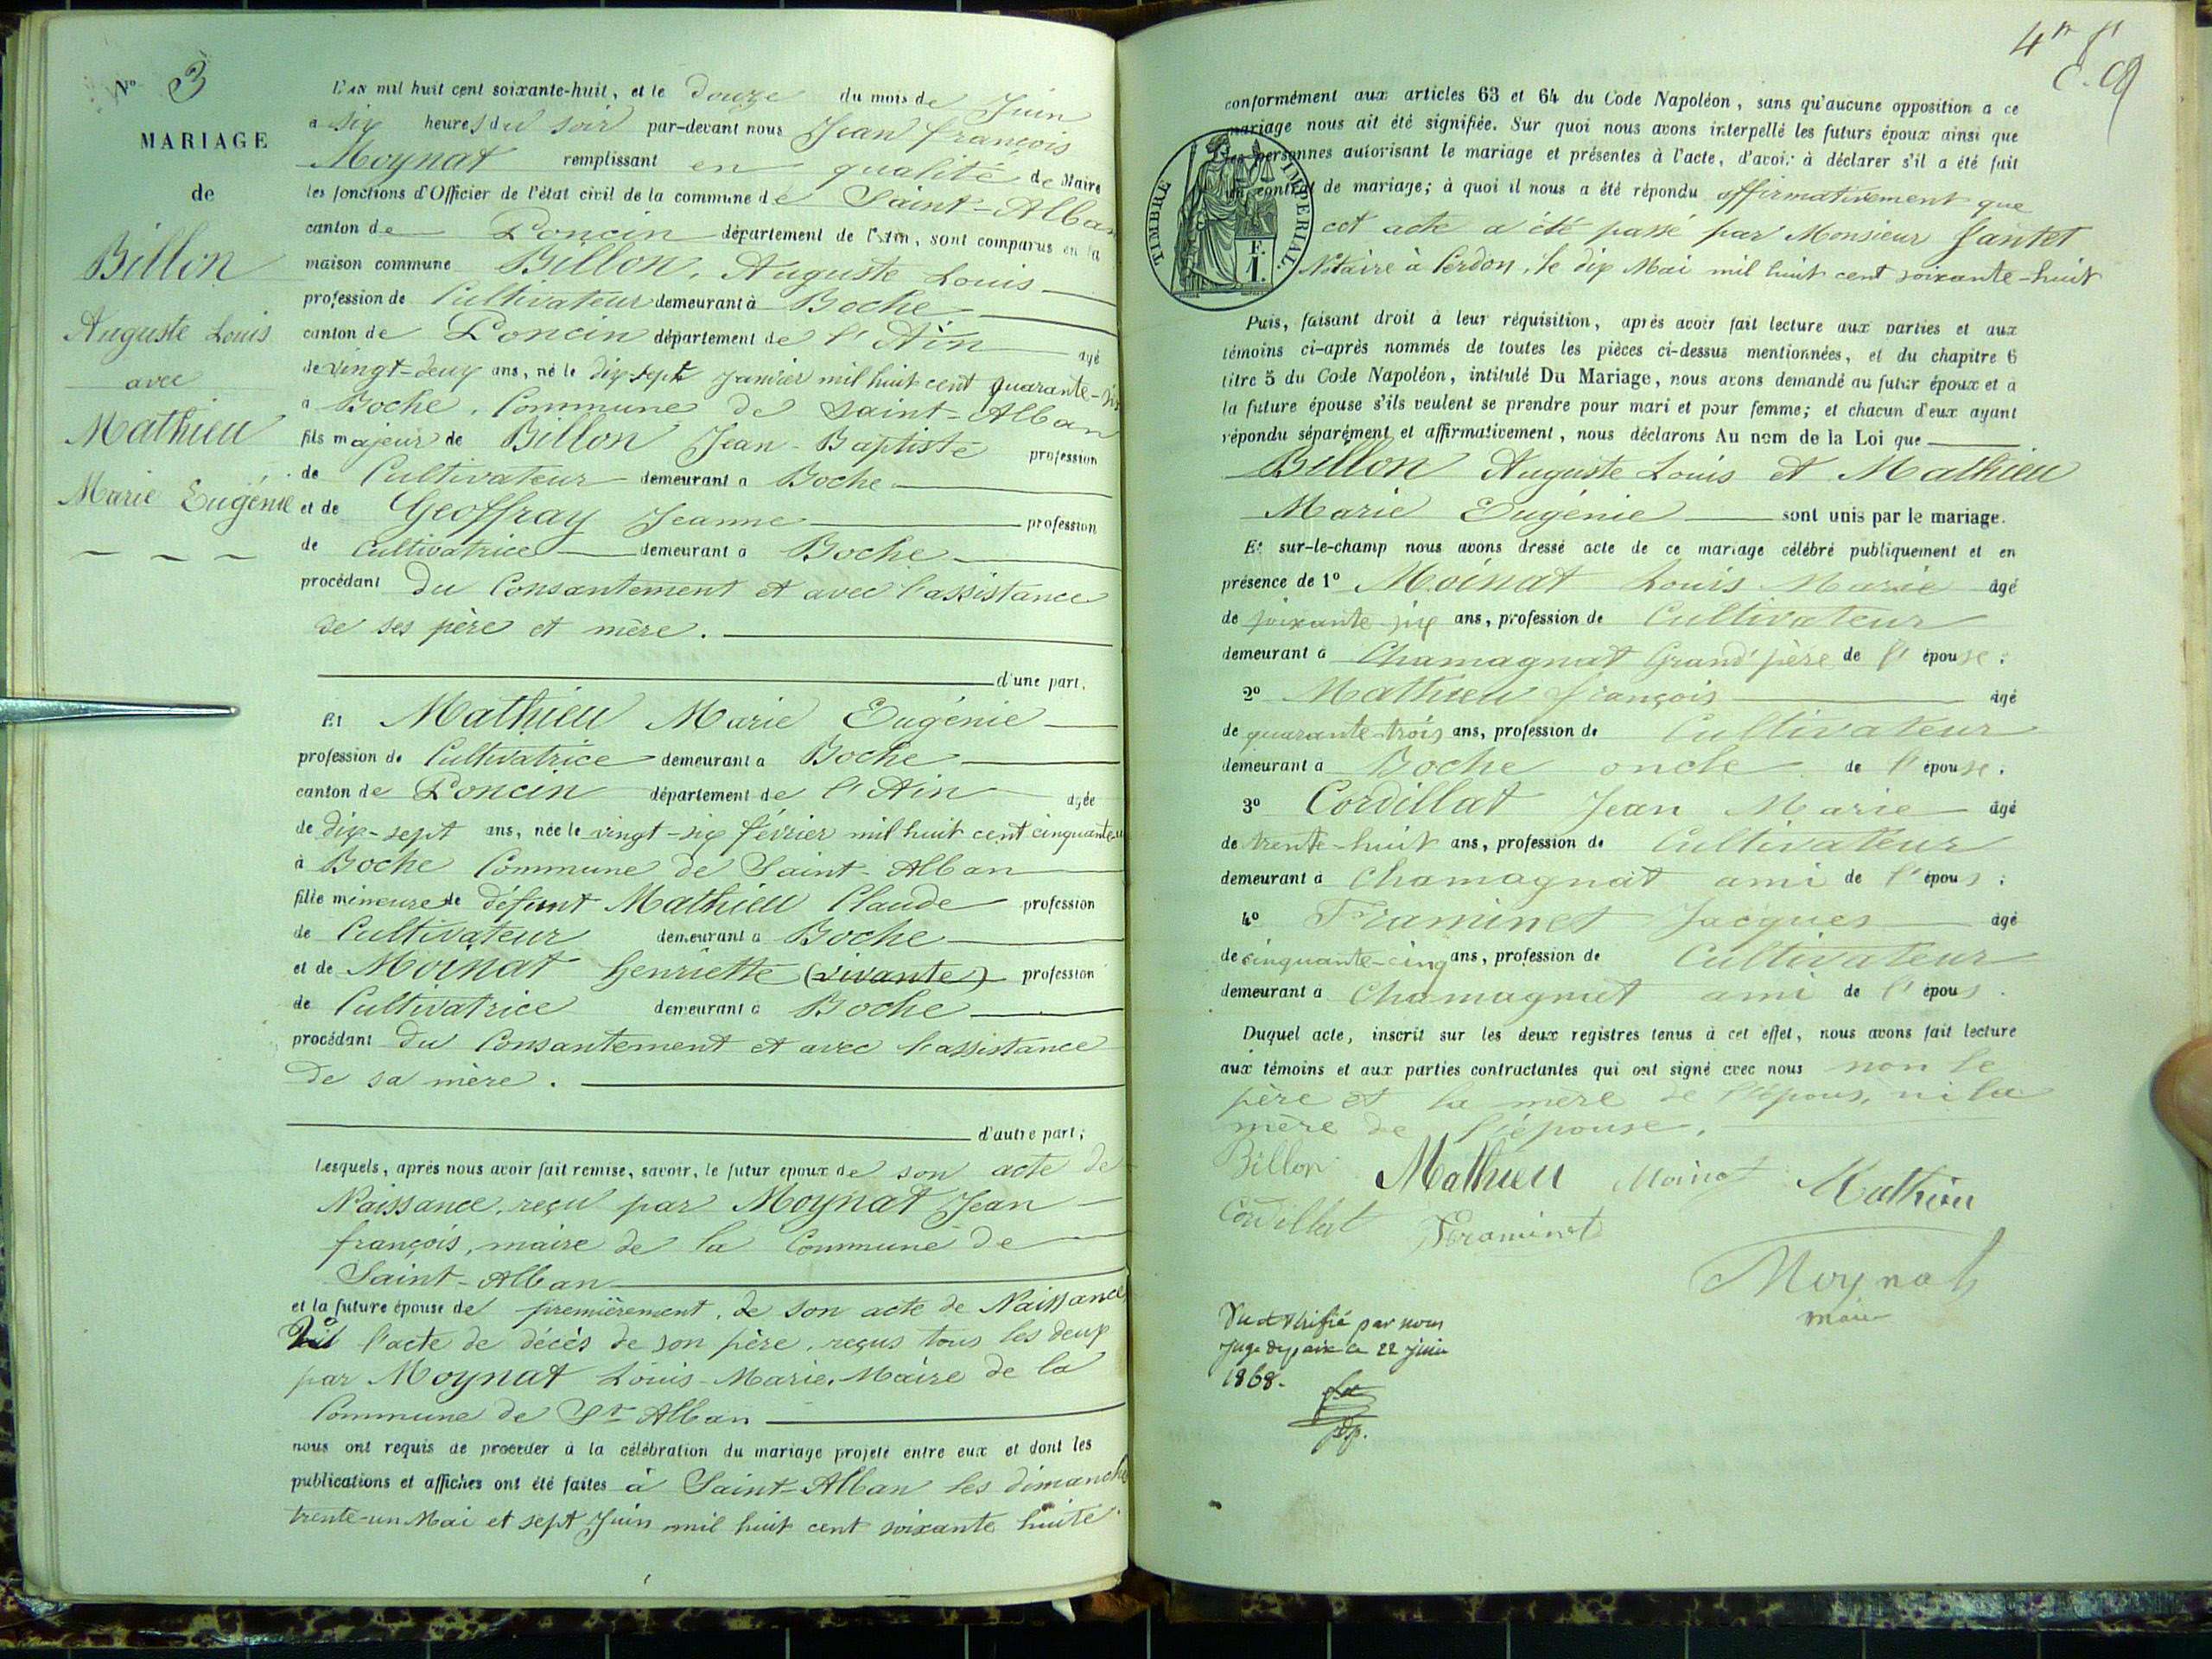 N° 3
MARIAGE
de
Billon
Auguste Louis
avec
Mathieu
Marie Eugénie
L'an mil huit cent soixante-huit, et le douze du mois de Juin
a six heures du soir par-devant nous Jean françois
Moynat remplissant en qualité de Maire
les fonctions d'Officier de l'état civil de la commune de Saint-Alban
canton de Poncin département de l'Ain, sont comparus en la
maison commune Billon, Auguste Louis
profession de Cultivateur demeurant à Boche
canton de Poncin département de l'Ain agé
de vingt-deux ans, né le dix sept Janvier mil huit cent quarante-six
a Boche, Commune de Saint-Alban
fils majeur de Billon Jean-Baptiste profession
de Cultivateur demeurant a Boche
et de Geoffray Jeanne profession
de Cultivatrice demeurant a Boche
procédant du Consantement et avec l'assistance
de ses père et mère.
d'une part.
Et Mathieu Marie Eugénie
profession de Cultivatrice demeurant a Boche
canton de Poncin département de l'Ain agée
de dix-sept ans, née le vingt-six février mil huit cent cinquante
à Boche Commune de Saint-Alban
fille mineure de défunt Mathieu Claude profession
de Cultivateur demeurant a Boche
et de Moinat henriette (vivante) profession
de Cultivatrice demeurant a Boche
procédant du Consantement et avec l'assistance
de sa mère.
d'autre part;
Lesquels, après nous avoir fait remise, savoir, le futur époux de son acte de
Naissance, reçu par Moynat Jean
françois, maire de la Commune de
Saint-Alban
et la future épouse de premièrement, de son acte de Naissance
l'acte de décès de son père, reçus tous les deux
par Moynat Louis-Marie, Maire de la
Commune de St Alban
nous ont requis de procéder à la célébration du mariage projeté entre eux et dont les
publications et affiches ont été faites à Saint-Alban les dimanche
trente-un Mai et sept Juin mil huit cent soixante huite
4
conformément aux articles 63 et 64 du Code Napoléon, sans qu'aucune opposition a ce
mariage nous ait été signifiée. Sur quoi nous avons interpellé les futurs époux ainsi que
les personnes autorisant le mariage et présentes à l'acte, d'avoir à déclarer s'il a été fait
un contrat de mariage; à quoi il nous a été répondu affirmativement que
TIMBRE IMPERIAL.
1 F.
cet acte a été passé par Monsieur Jantet
Notaire à Cerdon, le dix Mai mil huit cent soixante-huit
Puis, faisant droit à leur réquisition, après avoir fait lecture aux parties et aux
témoins ci-après nommés de toutes les pièces ci-dessus mentionnées, et du chapitre 6
titre 5 du Code Napoléon, intitulé Du Mariage, nous avons demandé au futur époux et à
la future épouse s'ils veulent se prendre pour mari et pour femme; et chacun d'eux ayant
répondu séparément et affirmativement, nous déclarons Au nom de la Loi que
Billon Auguste Louis et Mathieu
Marie Eugénie sont unis par le mariage.
Et sur-le-champ nous avons dressé acte de ce mariage célébré publiquement et en
présence de 1° Moinat Louis Marie âgé
de soixante-six ans, profession de Cultivateur
demeurant à Chamagnat Grand'père de l'épouse;
2° Mathieu françois âgé
de quarante-trois ans, profession de Cultivateur
demeurant à Boche oncle de l'épouse.
3° Cordillat Jean Marie âgé
de trente-huit ans, profession de Cultivateur
demeurant à Chamagnat ami de l'épous;
4° Framinet Jacques âgé
de cinquante-cinq ans, profession de Cultivateur
demeurant à Chamagnat ami de l'épous.
Duquel acte, inscrit sur les deux registres tenus à cet effet, nous avons fait lecture
aux témoins et aux parties contractantes qui ont signé avec nous non le
père et la mère de l'épous, ni la
mère de l'épouse.
Billon Mathieu Moinat Mathieu
Cordillat Framinet
Moynat
maire
Vu et vérifié par nous
Juge de paix ce 22 Juin
1868.